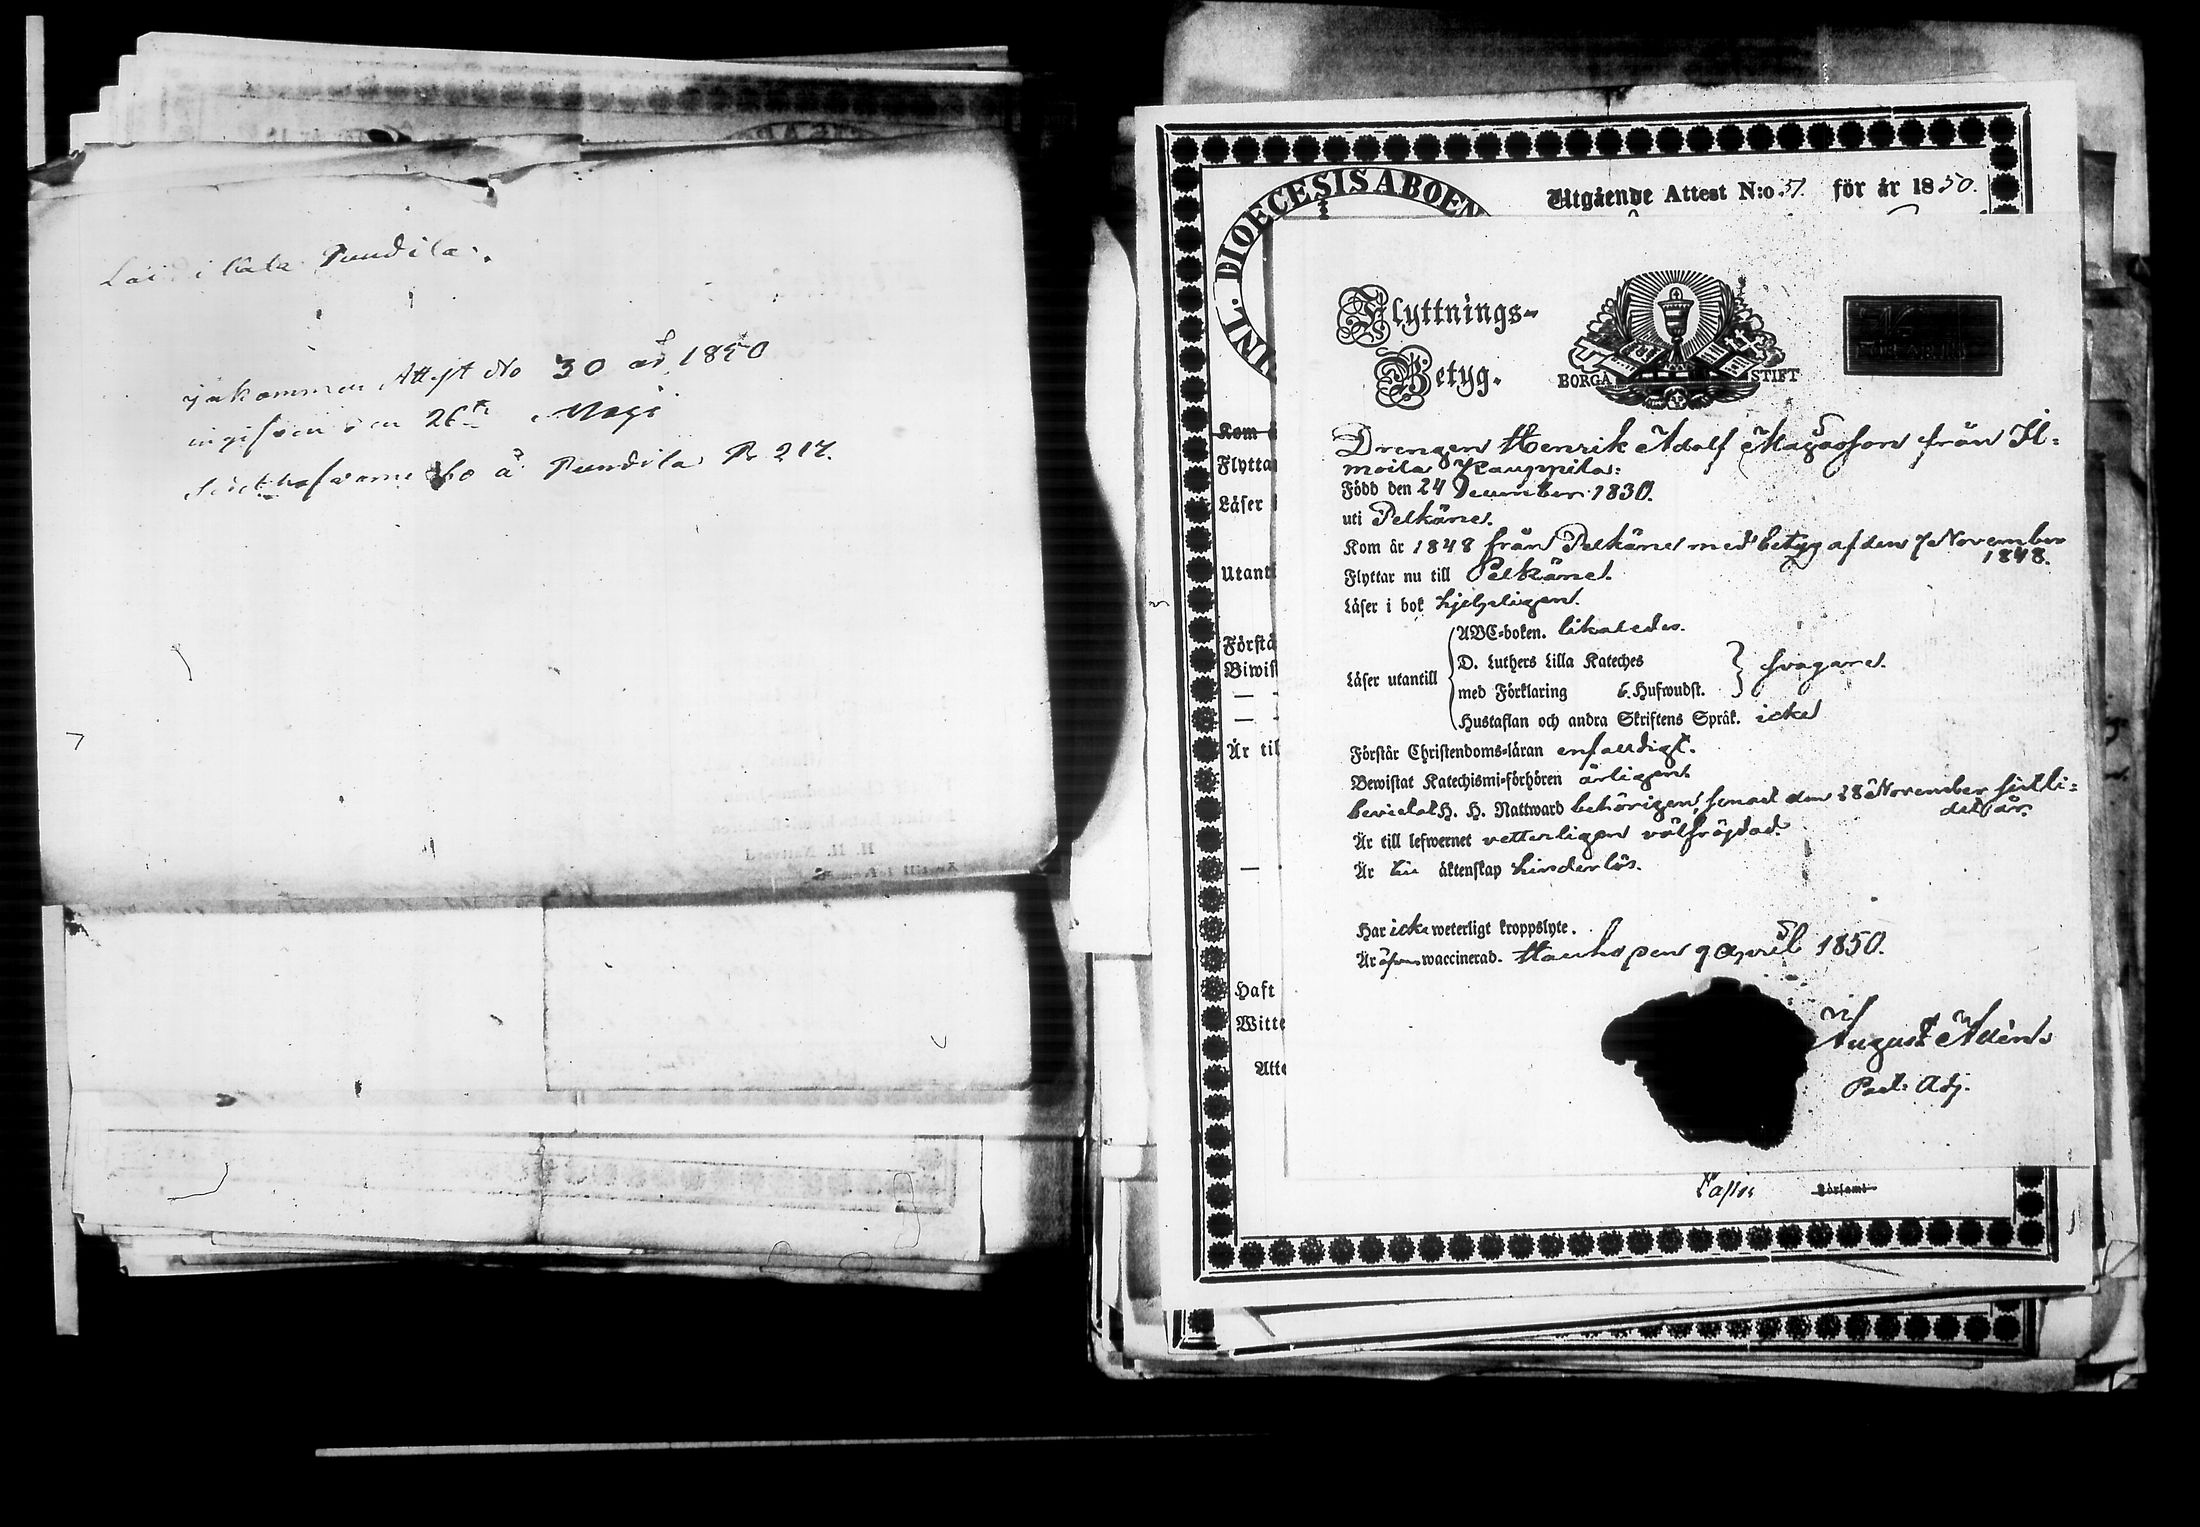 i Pundila
Attest No 30 år 1850
den 26te Maji
å Pundila 217.
Utgående Attest N:o 31. för år 1850.
DIOECESIS ABOEN
Flyttnings-
Betyg.
BORGÅ STIFT
Drengen Henrik Adolf från Il=
moila Kauppila:
Född den 24 December 1830.
uti Pelkäne.
Kom år 1848 från Pelkäne med betyg af den 7 November
1848.
Flyttar nu till Pelkäne.
Läser i bok hjelpligen.
Läser utantill
ABC-boken. likaledes.
D. Luthers Lilla Kateches
med Förklaring 6. Hufwudst. svagare.
Hustaflan och andra Skriftens Språk. icke
Förstår Christendoms-läran enfaldigt.
Bewistat Katechismi-förhören årligen
bevistat H. H. Nattward behörigen, senast den 28 November sistli=
det år.
Är till lefwernet vetterligen välfrägdad.
Är till äktenskap hinderlös.
Har icke weterligt kroppslyte.
Är äfven waccinerad. Hauho den 9 April 1850.
August
Past. Adj.
Kom
Flytta
Läser
Utant
Förstå
Biwist
Är til
Haft
Witte
Atte
Pastor